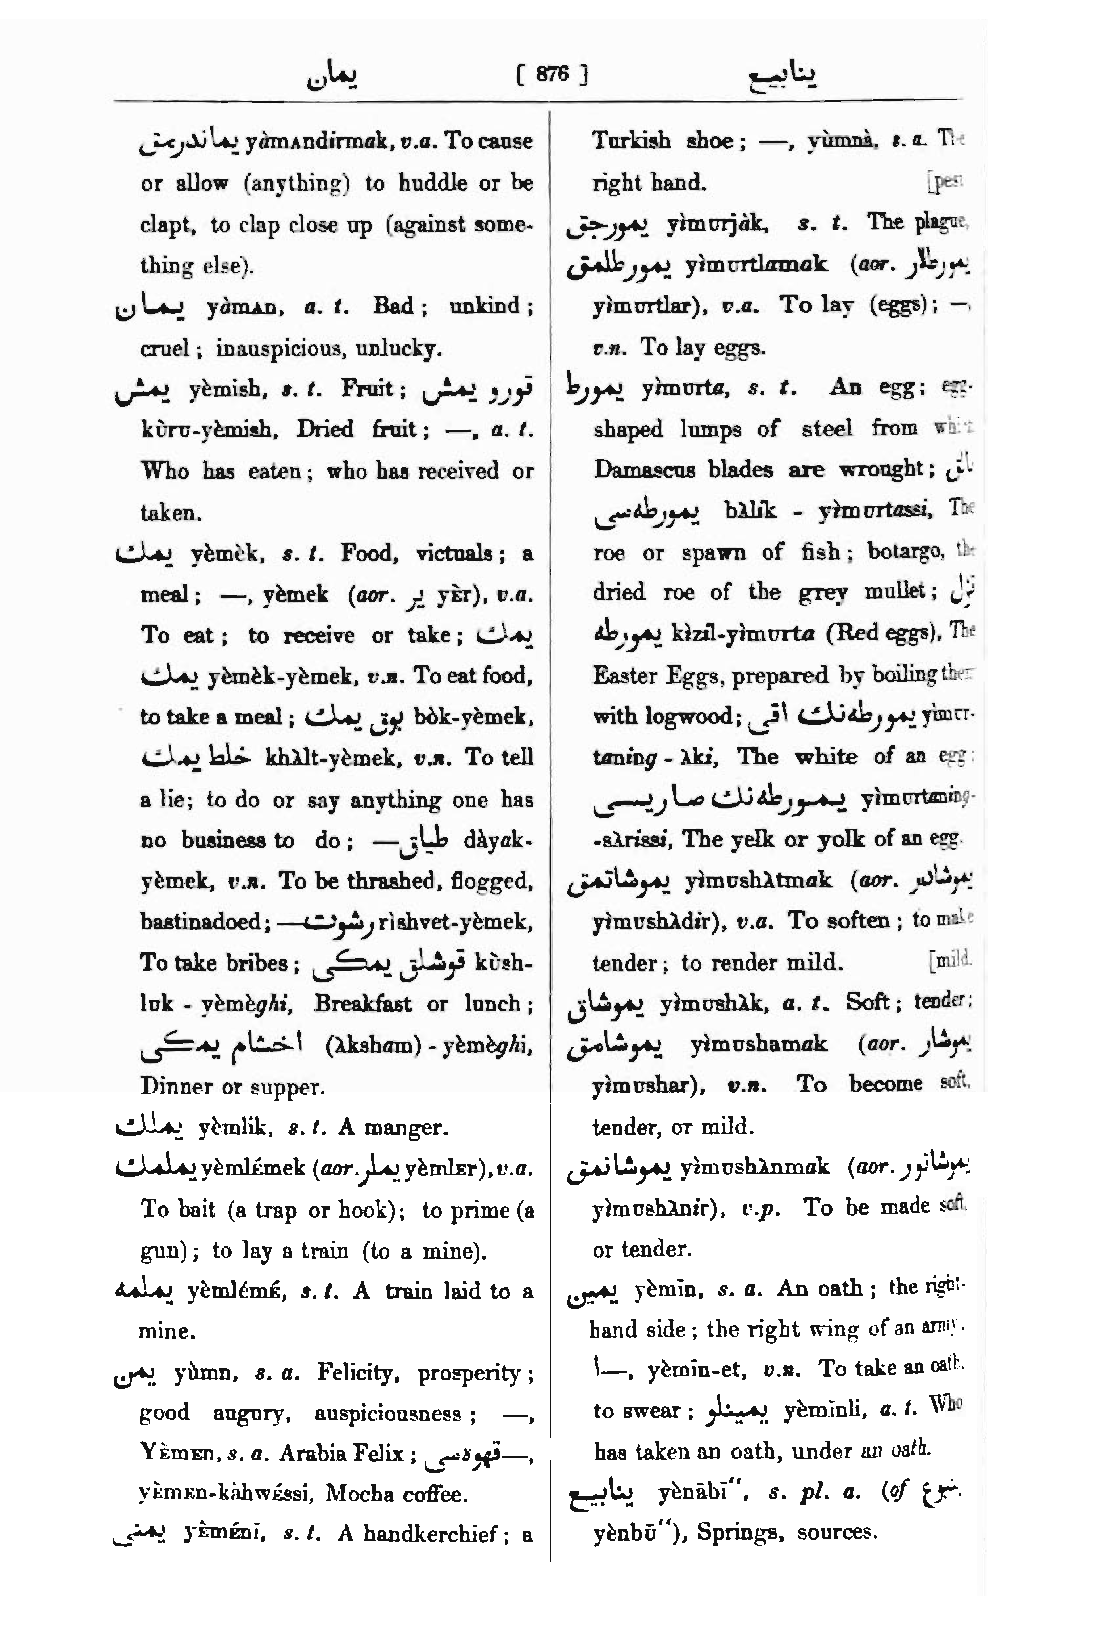 يمان [ 876 ] ينابيع
يماندرمق yàmᴀndirmak, v.a. To cause
or allow (anything) to huddle or be
clapt, to clap close up (against some-
thing else).
يمان yàmᴀn, a. t. Bad ; unkind ;
cruel ; inauspicious, unlucky.
يمش yèmish, s. t. Fruit ; قورو يمش
kùrᴜ-yèmish, Dried fruit ; —, a. t.
Who has eaten ; who has received or
taken.
يمك yèmèk, s. t. Food, victuals ; a
meal ; —, yèmek (aor. ير yᴇ̀r), v.a.
To eat ; to receive or take ; يمك
يمك yèmèk-yèmek, v.n. To eat food,
to take a meal ; بوق يمك bòk-yèmek,
خلط يمك khλlt-yèmek, v.n. To tell
a lie; to do or say anything one has
no business to do ; —طياق dàyak-
yèmek, v.n. To be thrashed, flogged,
bastinadoed ; —رشوت rìshvet-yèmek,
To take bribes ; قوشلق يمكى kùsh-
luk - yèmèghi, Breakfast or lunch ;
اخشام يمكى (λksham) - yèmèghi,
Dinner or supper.
يملك yèmlik, s. t. A manger.
يملمك yèmlᴇ́mek (aor. يملر yèmlᴇr), v.a.
To bait (a trap or hook); to prime (a
gun) ; to lay a train (to a mine).
يملمه yèmlémᴇ́, s. t. A train laid to a
mine.
يمن yùmn, s. a. Felicity, prosperity ;
good augury, auspiciousness ; —,
Yᴇ̀mᴇn, s. a. Arabia Felix ; قهوهسى—,
yᴇ̀mᴇn-kàhwᴇ́ssi, Mocha coffee.
يمنى yᴇ̀mᴇ́nī, s. t. A handkerchief ; a
Turkish shoe ; —, yùmnà, s. a. The
right hand. [pest.
يمورجق yìmᴜrjàk, s. t. The plague,
يمورطلمق yìmᴜrtlamak (aor. يمورطلار
yìmᴜrtlar), v.a. To lay (eggs) ; —,
v.n. To lay eggs.
يمورطه yìmᴜrta, s. t. An egg ; egg-
shaped lumps of steel from which
Damascus blades are wrought ; بالق
يمورطهسى bλlik - yìmᴜrtassi, The
roe or spawn of fish ; botargo, the
dried roe of the grey mullet ; قزل
يمورطه kìzíl-yìmᴜrta (Red eggs), The
Easter Eggs, prepared by boiling them
with logwood ; يمورطهنك اقى yìmᴜr-
taning - λki, The white of an egg ;
يمورطهنك صاريسى yìmᴜrtaning-
-sλrissi, The yelk or yolk of an egg.
يموشاتمق yìmᴜshλtmak (aor. يموشادر
yìmᴜshλdir), v.a. To soften ; to make
tender ; to render mild. [mild.
يموشاق yìmᴜshλk, a. t. Soft ; tender ;
يموشامق yìmᴜshamak (aor. يموشار
yìmᴜshar), v.n. To become soft,
tender, or mild.
يموشانمق yìmᴜshλnmak (aor. يموشانور
yìmᴜshλnir), v.p. To be made soft
or tender.
يمين yèmīn, s. a. An oath ; the right-
hand side ; the right wing of an army.
ا—, yèmīn-et, v.n. To take an oath.
to swear ; يمينلو yèmīnli, a. t. Who
has taken an oath, under an oath.
ينابيع yènābī“, s. pl. a. (of ينبوع
yènbū“), Springs, sources.